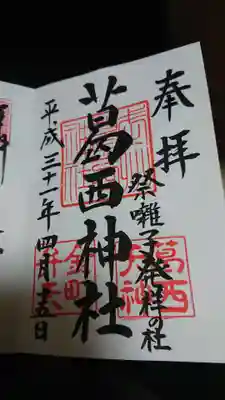 奉拝
祭囃子発祥の社
葛西神社
平成三十一年四月十五日
葛西